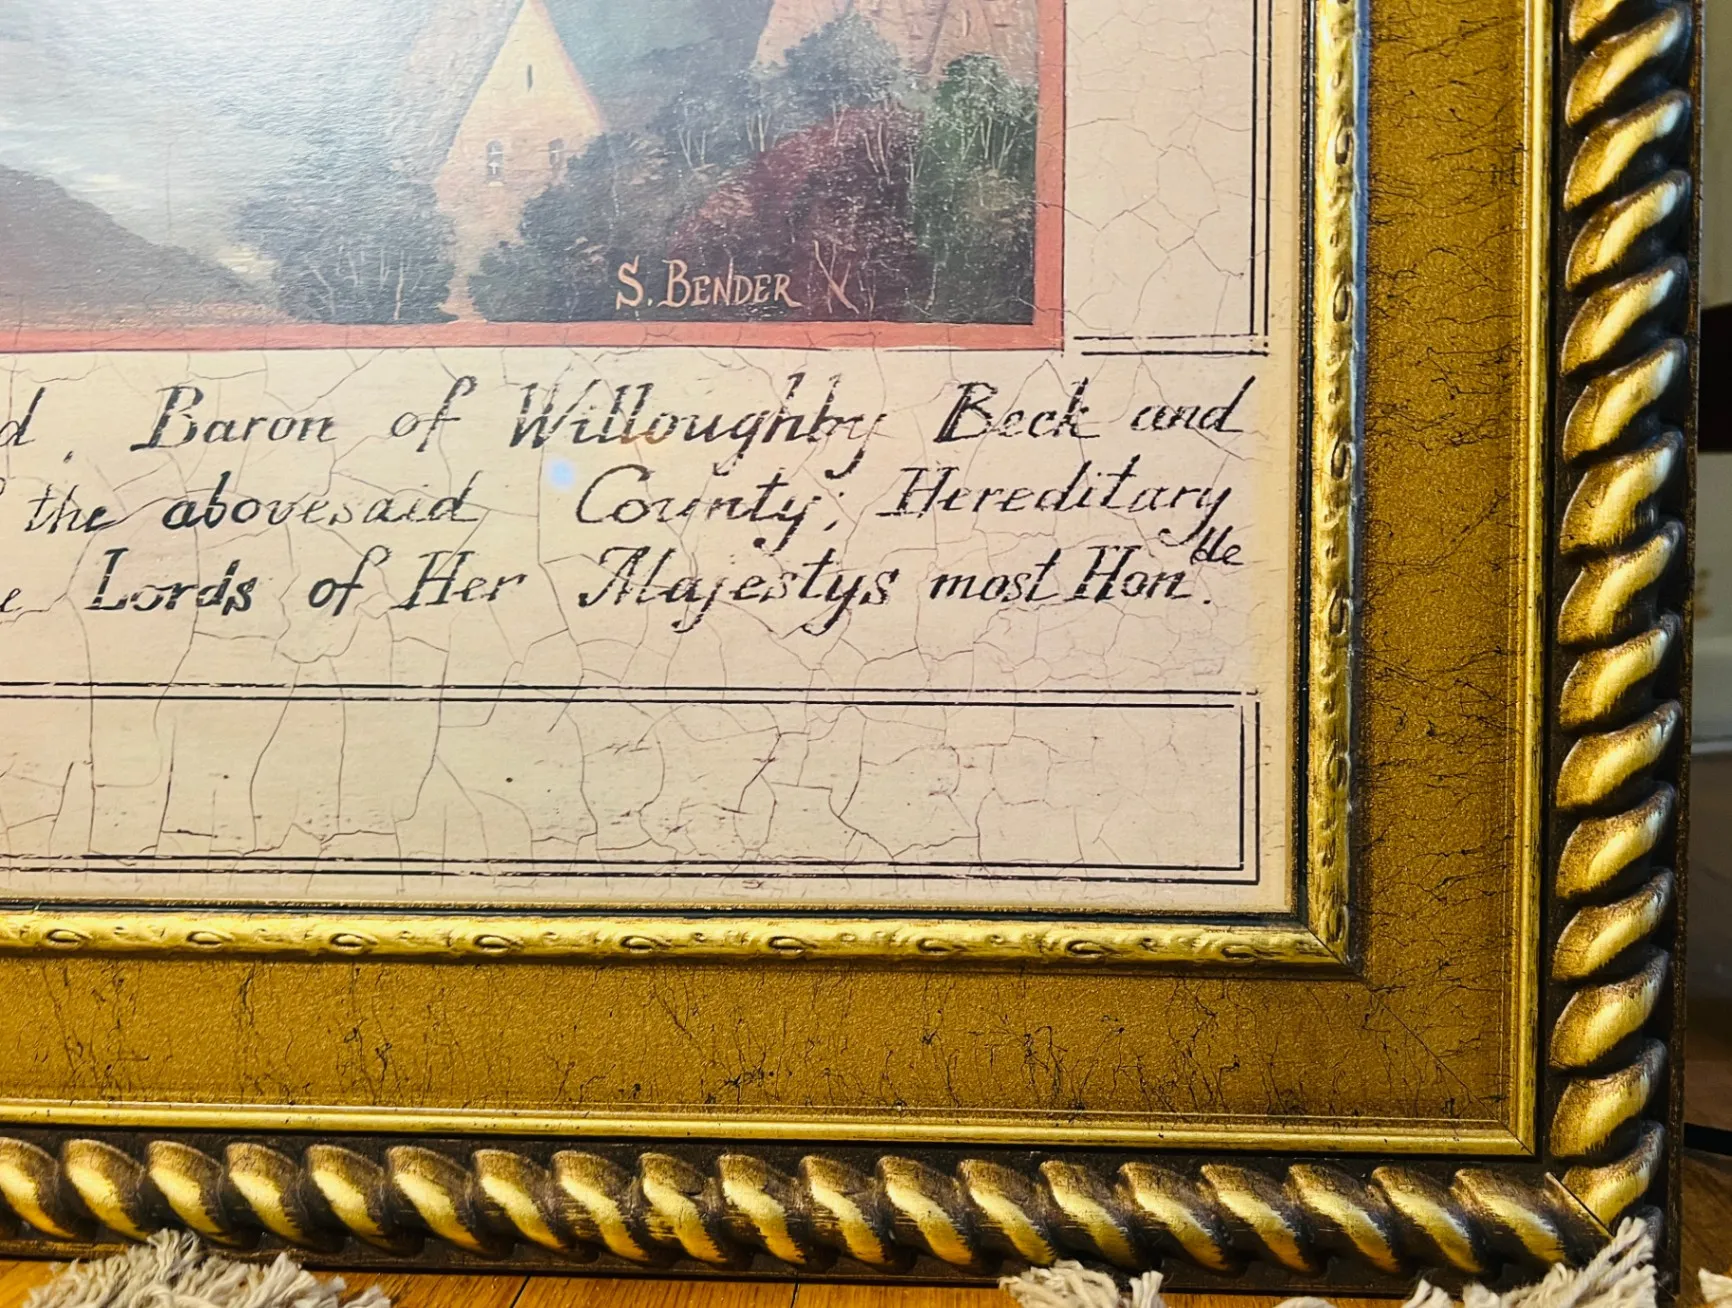 S. BENDER
d, Baron of Willoughby Beck and
the abovesaid County; Hereditary
e Lords of Her Majestys most Hon.ble